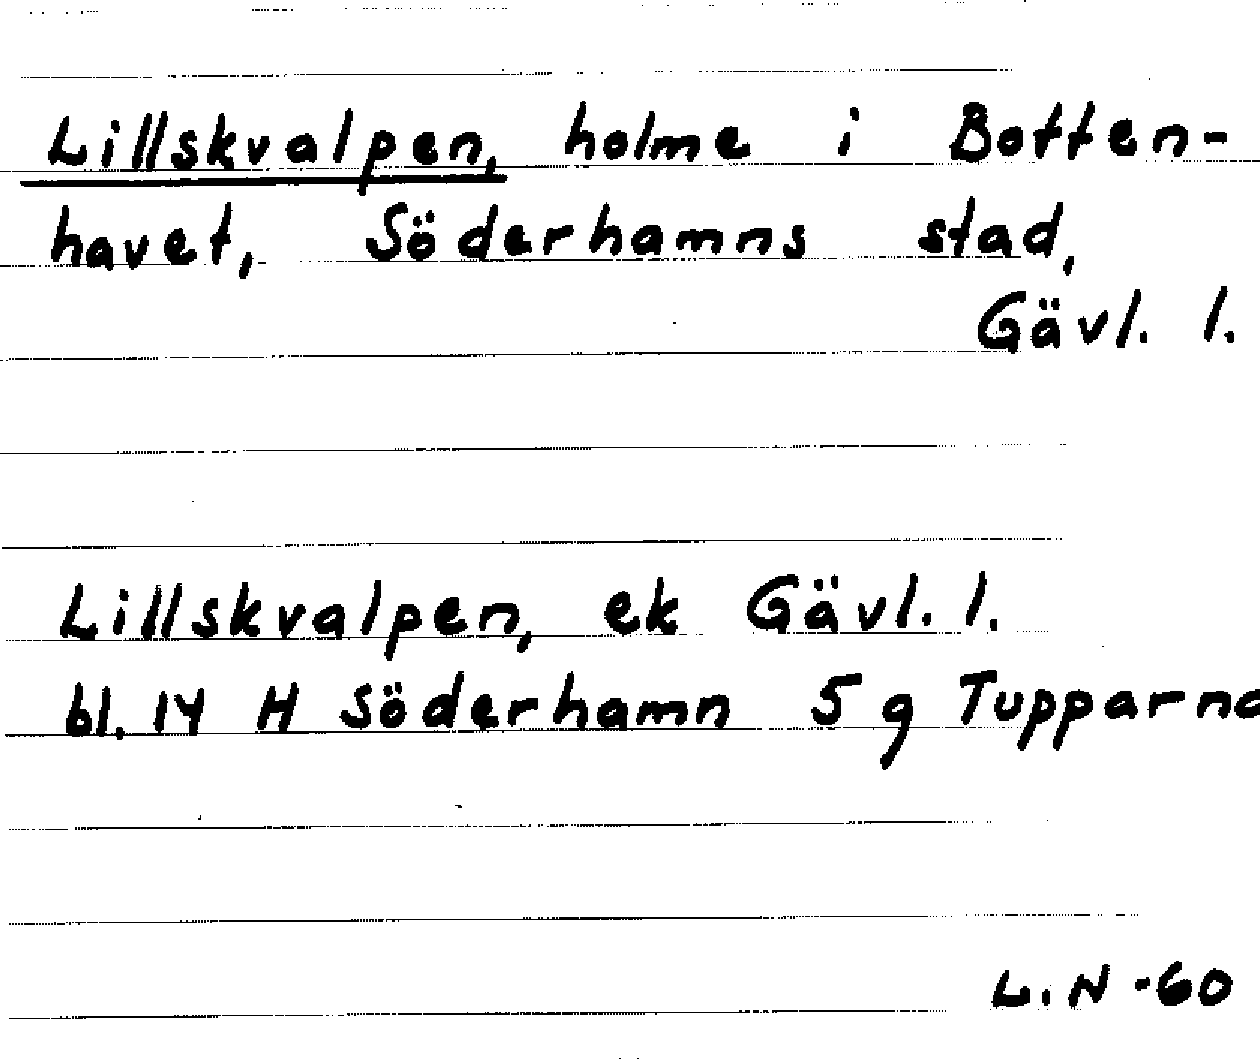 Lillskvalpen, holme i Botten-
havet, Söderhamns stad,
Gävl. l.
Lillskvalpen, ek Gävl. l.
bl. 14 H Söderhamn 5 g Tupparna
L. N -60